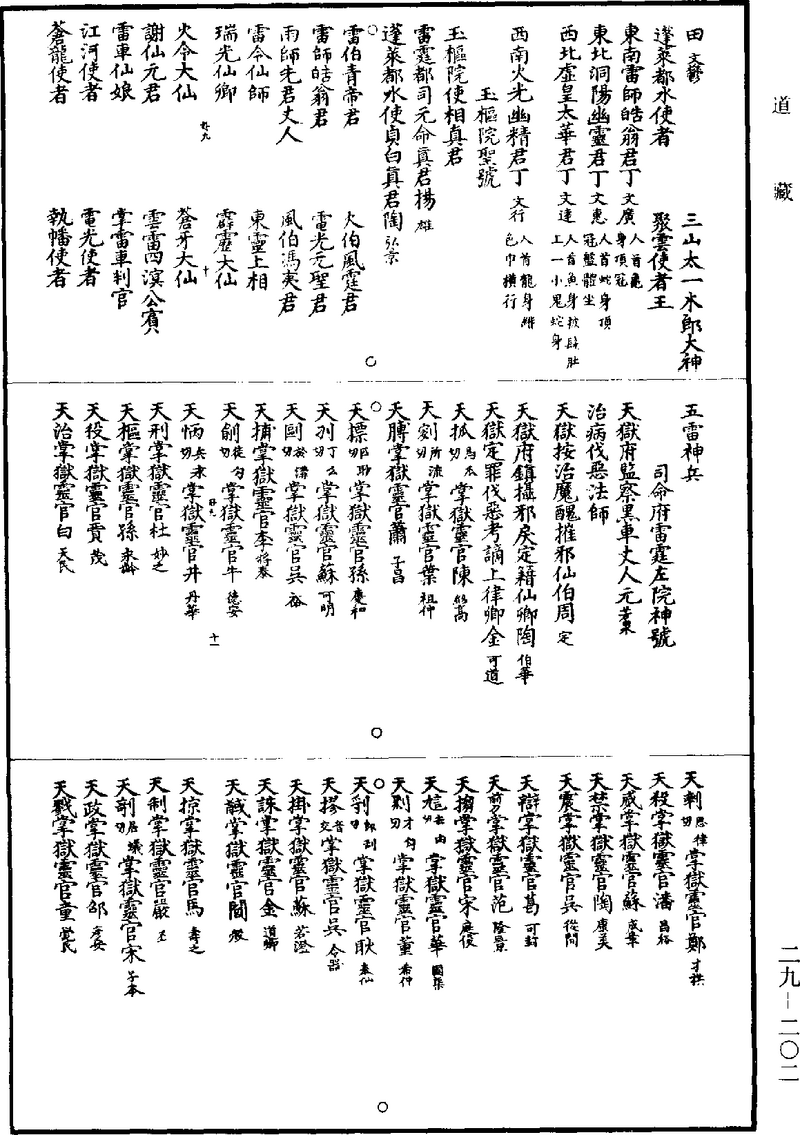 道藏
田文鬱　三山太一木郎大神
蓬萊都水使者　聚雲使者王
東南雷師皓翁君丁文廣　人首龜身頂冠
東北洞陽幽靈君丁文惠　人首蛇身頂冠盤體坐
西北虛皇太華君丁文達　人首魚身披肚上一小鬼蛇身
西南火光幽精君丁文行　人首龍身緋色巾橫行
玉樞院聖號
玉樞院使相真君
雷霆都司元命真君揚雄
蓬萊都水使貞白真君陶弘景
雷伯青帝君　火伯風霆君
雷師皓翁君　電光元聖君
雨師先君丈人　風伯馮夷君
雷令仙師　東靈上相
瑞光仙卿　霹靂大仙
九　十
火令大仙　蒼牙大仙
謝仙元君　雲雷四溟公賓
雷車仙娘　掌雷車判官
江河使者　電光使者
蒼龍使者　執幡使者
五雷神兵
司命府雷霆左院神號
天獄府監察黑車丈人元
治病伐惡法師
天獄按治魔醜摧邪仙伯周定
天獄府鎮攝邪戾定籍仙卿陶伯華
天獄定罪伐惡考謫上律卿金可道
天孤掌獄靈官陳高
天刻所流切掌獄靈官葉祖仲
天膊掌獄靈官蕭子昌
天摽切掌獄靈官孫慶和
天刐丁么切掌獄靈官蘇可明
天切掌獄靈官吳裕
天捕掌獄靈官李將春
天創徒勾切掌獄靈官牛德安
天怲兵永切掌獄靈官井丹華
十一
天刑掌獄靈官杜妙之
天樞掌獄靈官孫來齡
天役掌獄靈官賈茂
天治掌獄靈官白天民
天剌思律切掌獄靈官鄭才祺
天殺掌獄靈官潘昌裕
天威掌獄靈官蘇成章
天禁掌獄靈官陶康美
天震掌獄靈官吳從問
天辯掌獄靈官葛可封
天剪掌獄靈官范隆景
天摘掌獄靈官宋庭使
天切掌獄靈官華國渠
天切掌獄靈官董希仲
天切掌獄靈官耿春仙
天摎音交掌獄靈官吳令器
天掛掌獄靈官蘇若澄
天誅掌獄靈官金道卿
天馘掌獄靈官閻發
天掠掌獄靈官馬壽之
天制掌獄靈官嚴丕
天切掌獄靈官宋子本
天政掌獄靈官邵考安
天戮掌獄靈官童覺民
二九-二〇二